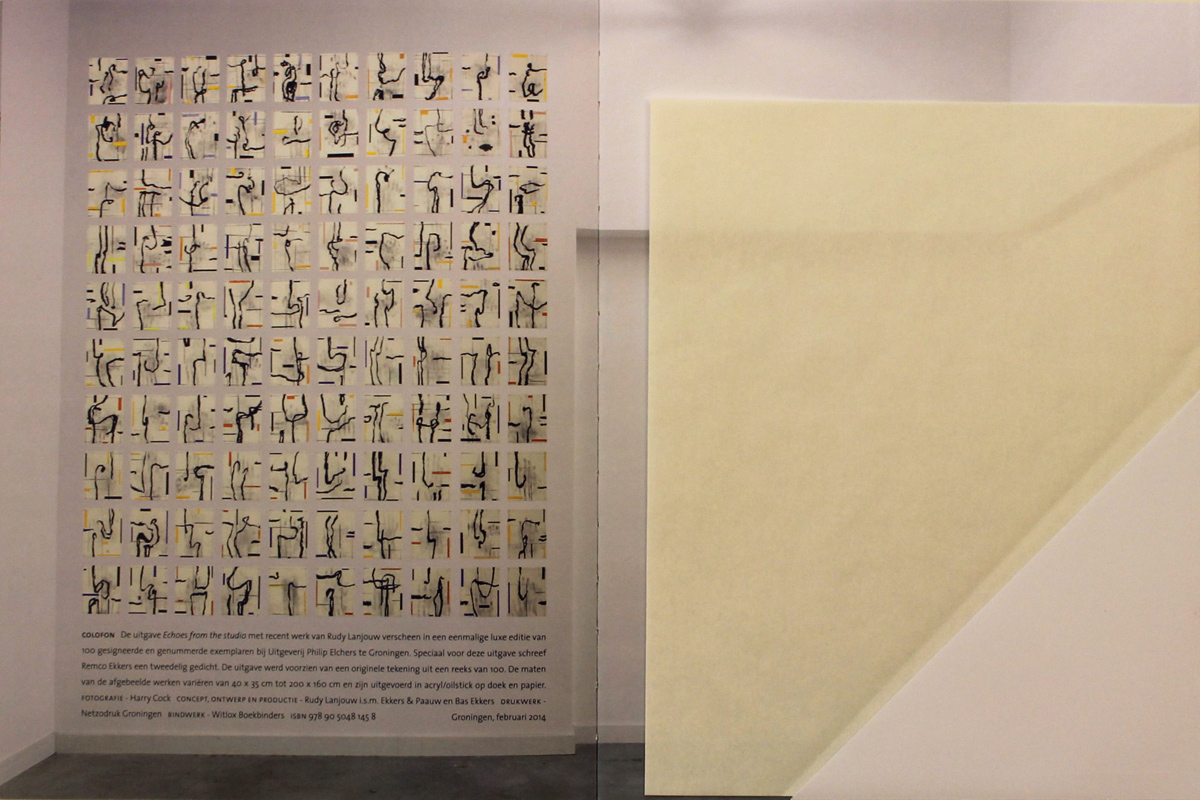 COLOFON De uitgave Echoes from the studio met recent werk van Rudy Lanjouw verscheen in een eenmalige luxe editie van
100 gesigneerde en genummerde exemplaren bij Uitgeverij Philip Elchers te Groningen. Speciaal voor deze uitgave schreef
Remco Ekkers een tweedelig gedicht. De uitgave werd voorzien van een originele tekening uit een reeks van 100. De maten
van de afgebeelde werken variëren van 40 x 35 cm tot 200 x 160 cm en zijn uitgevoerd in acryl/oilstick op doek en papier.
FOTOGRAFIE - Harry Cock CONCEPT, ONTWERP EN PRODUCTIE - Rudy Lanjouw i.s.m. Ekkers & Paauw en Bas Ekkers DRUKWERK -
Netzodruk Groningen BINDWERK - Witlox Boekbinders ISBN 978 90 5048 145 8 Groningen, februari 2014